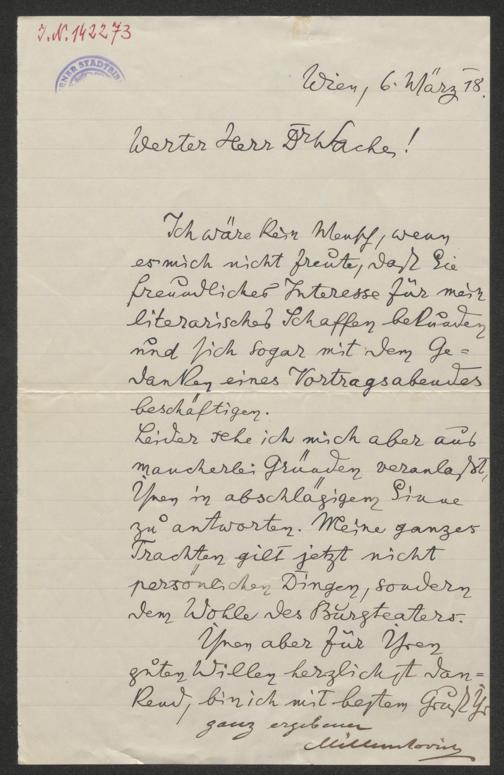 J.N. 142273
WIENER STADTBIB
Wien, 6. März 18.
Werter Herr Dr Wache!
Ich wäre kein Mensch, wenn
es mich nicht freute, daß Sie
freundliches Interesse für mein
literarisches Schaffen bekunden
und sich sogar mit dem Ge=
danken eines Vortragsabendes
beschäftigen.
Leider sehe ich mich aber aus
mancherlei Gründen veranlaßt,
Ihnen in abschlägigem Sinne
zu antworten. Meine ganzes
Trachten gilt jetzt nicht
persönlichen Dingen, sondern
dem Wohle des Burgteaters.
Ihnen aber für Ihren
guten Willen herzlichst dan=
kend, bin ich mit bestem Gruß Ihr
ganz ergebener
Millenkovich